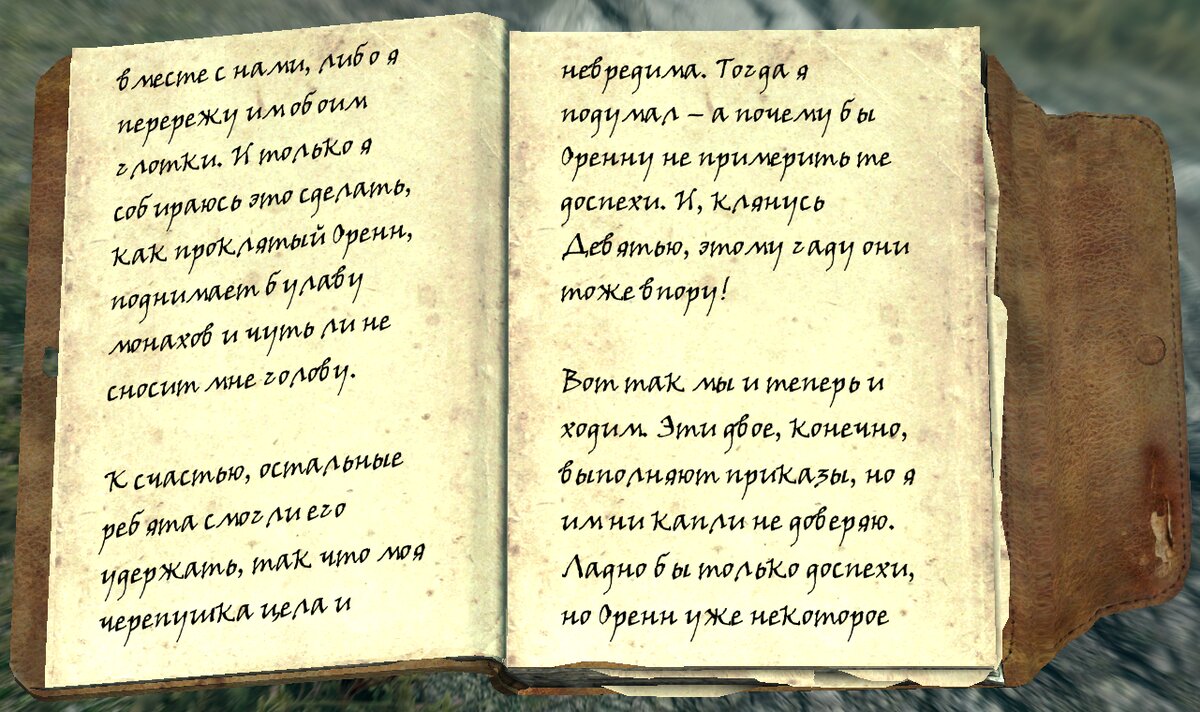 вместе с нами, либо я
перережу им обоим
глотки. И только я
собираюсь это сделать,
как проклятый Оренн,
поднимает булаву
монахов и чуть ли не
сносит мне голову.
К счастью, остальные
ребята смогли его
удержать, так что моя
черепушка цела и
невредима. Тогда я
подумал – а почему бы
Оренну не примерить те
доспехи. И, клянусь
Девятью, этому гаду они
тоже впору!
Вот так мы и теперь и
ходим. Эти двое, конечно,
выполняют приказы, но я
им ни капли не доверяю.
Ладно бы только доспехи,
но Оренн уже некоторое